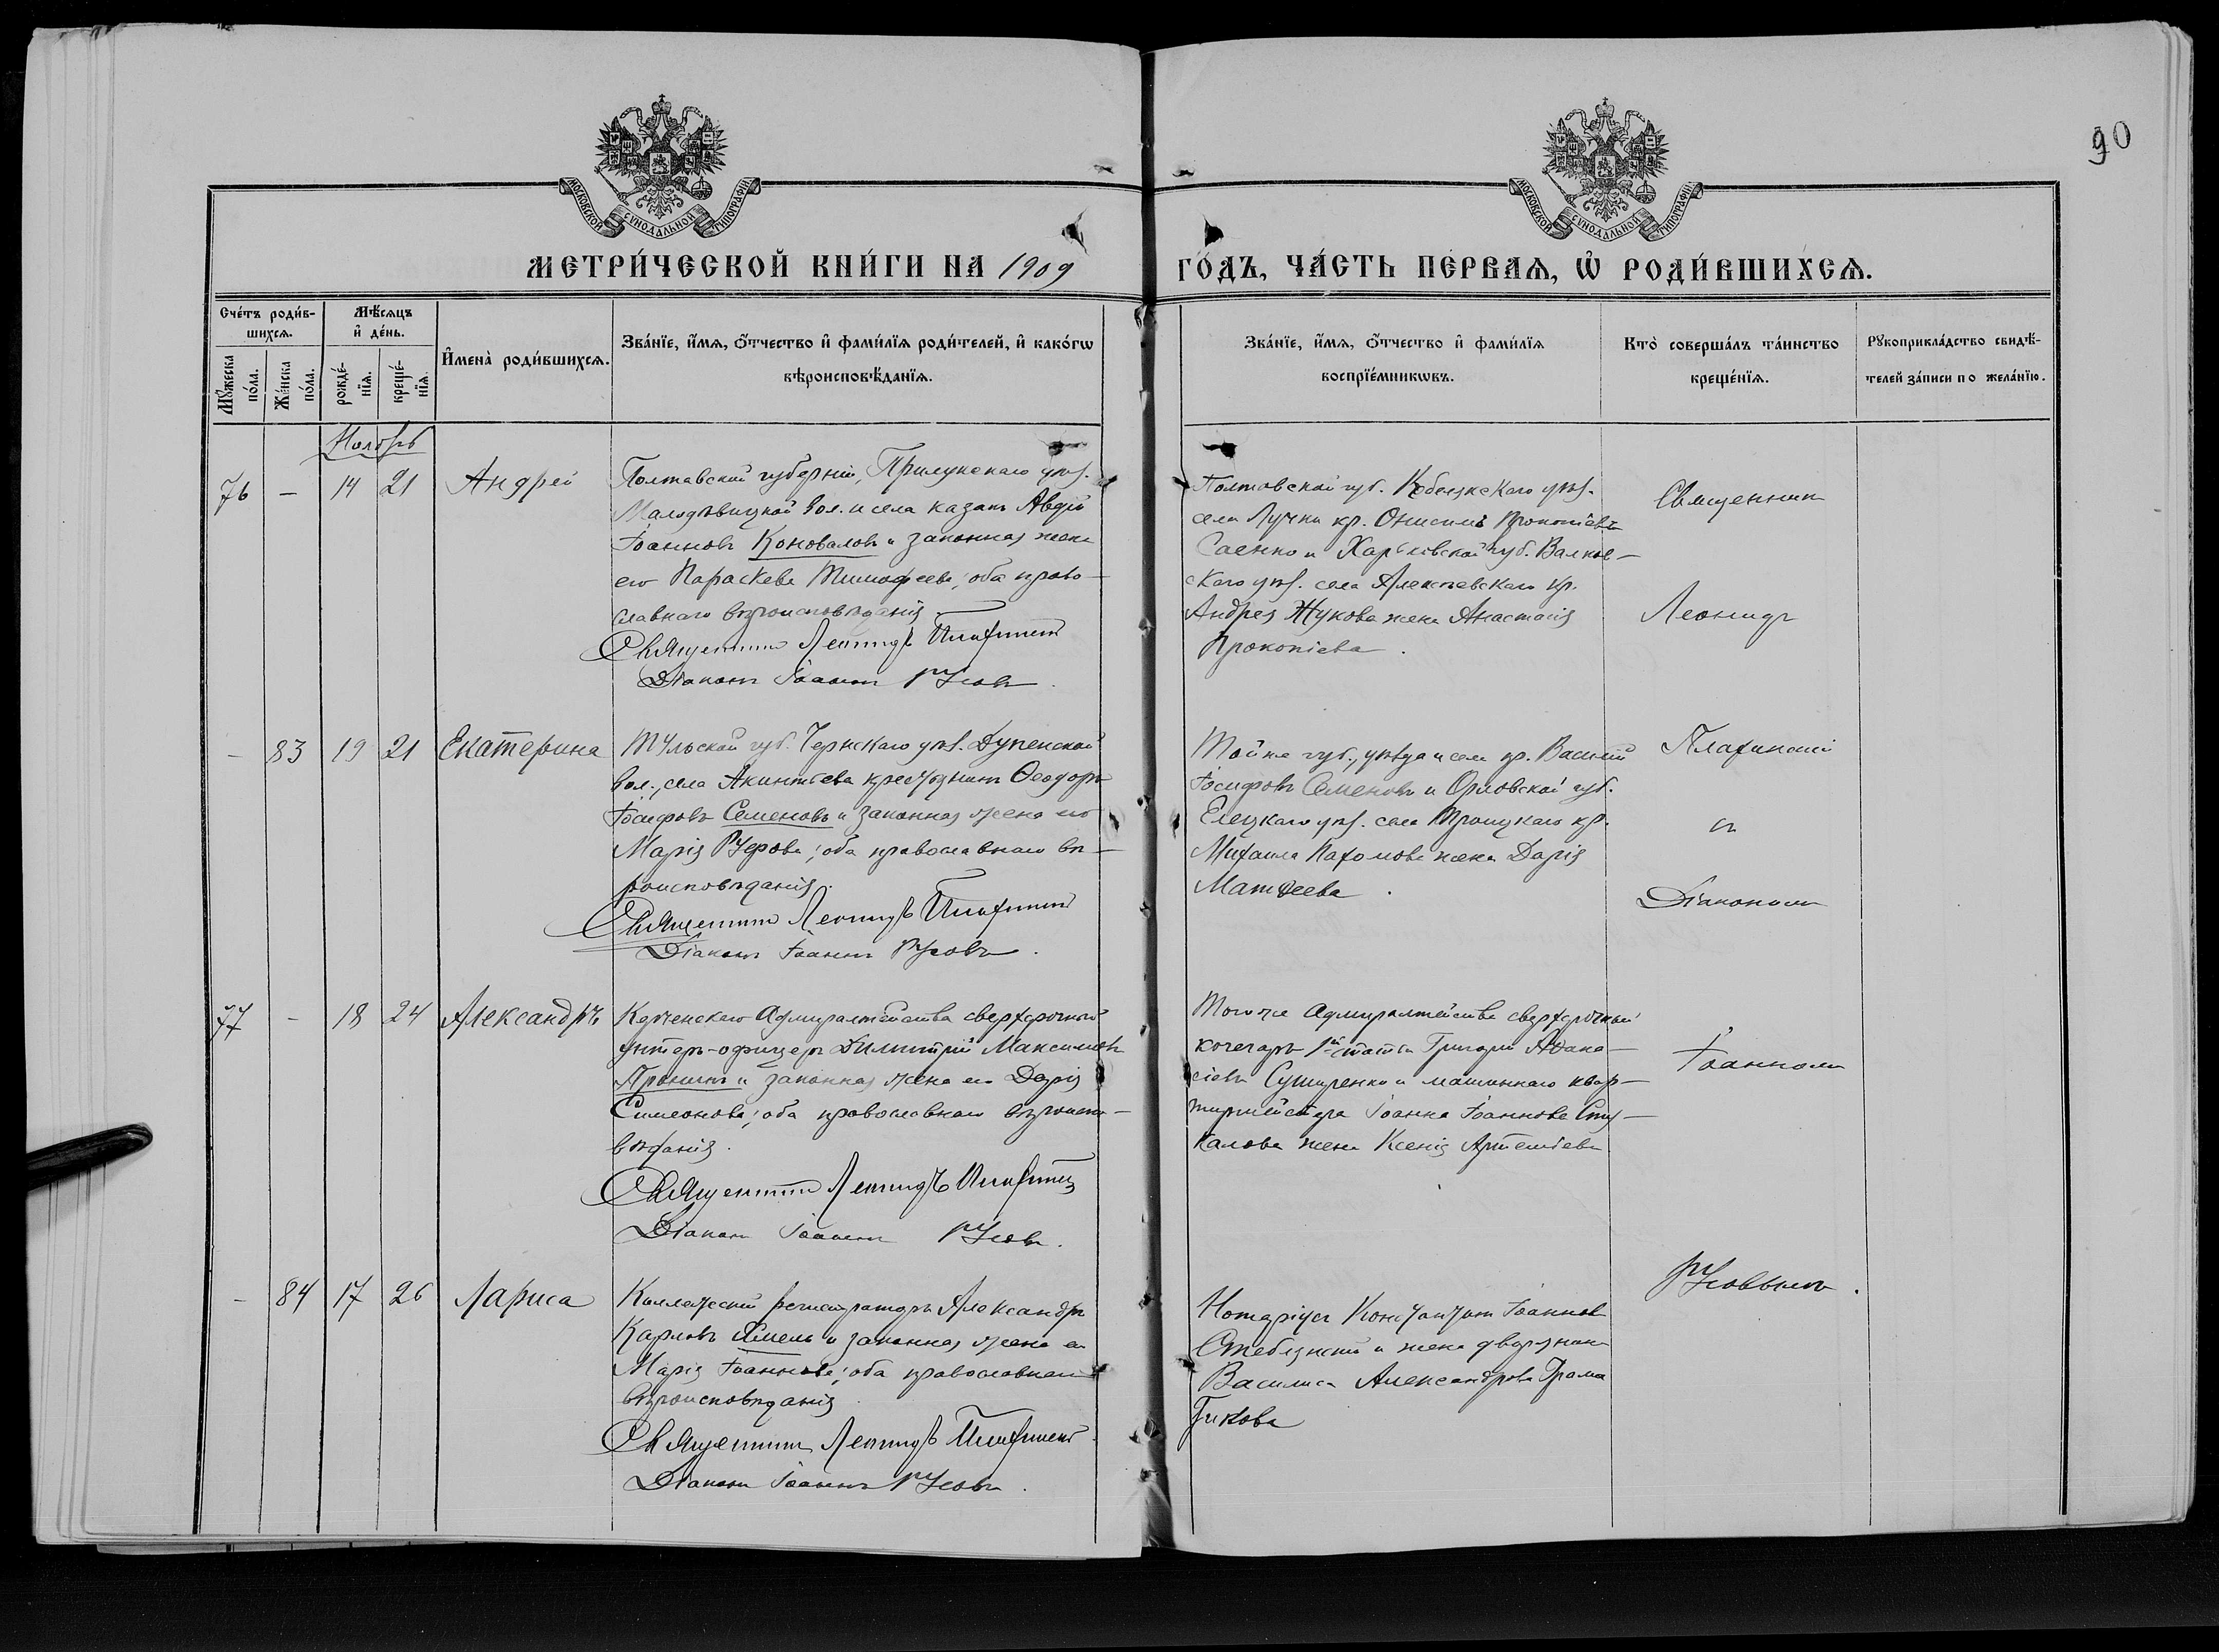 90
МОСКОВСКОЙ СѴНОДАЛЬНОЙ ТИПОГРАФІИ
МОСКОВСКОЙ СѴНОДАЛЬНОЙ ТИПОГРАФІИ
МЕТРИ́ЧЕСКОЙ КНИ́ГИ НА 1909 ГО́ДЪ, ЧА́СТЬ ПЕ́РВАѦ, Ѡ҆ РОДИ́ВШИХСѦ.
Сче́тъ роди́в-
шихсѧ.
Мꙋ́жеска по́ла.
Же́нска по́ла.
Мѣ́сѧцъ
и҆ де́нь.
рожде́-
нїѧ.
креще́-
нїѧ.
И҆мена̀ роди́вшихсѧ.
Зва́нїе, и҆́мѧ, ѻ҆́тчество и҆ фами́лїѧ роди́телей, и҆ како́гѡ
вѣроисповѣ́данїѧ.
Зва́нїе, и҆́мѧ, ѻ҆́тчество и҆ фами́лїѧ
воспрїе́мникѡвъ.
Кто̀ соверша́лъ та́инство
креще́нїѧ.
Рꙋкоприкла́дство свидѣ́-
телей за́писи по жела́нїю.
Ноябрь
76 – 14 21 Андрей
Полтавской губерніи, Прилукскаго уѣз.
Малодѣвицкой вол. и села казакъ Авдій
Іоанновъ Коноваловъ и законная жена
его Параскева Тимофеева; оба право-
славнаго вѣроисповѣданія.
Священникъ Леонидъ
Діаконъ Іоаннъ Русовъ.
Полтавской губ. Кобелякскаго уѣз.
села Лучки кр. Онисимъ Прокопіевъ
Саенко и Харьковской губ. Валков-
скаго уѣз. села Алексѣевскаго кр.
Андрея Жукова жена Анастасія
Прокопіева.
– 83 19 21 Екатерина
Тульской губ. Чернскаго уѣз. Дупенской
вол., села Акинтьева крестьянинъ Ѳеодоръ
Іосифовъ Семеновъ и законная жена его
Марія; оба православнаго вѣ-
роисповѣданія.
Священникъ Леонидъ
Діаконъ Іоаннъ Русовъ.
Той же губ., уѣзда и села кр. Василій
Іосифовъ Семеновъ и Орловской губ.
Елецкаго уѣз. села Троицкаго кр.
Михаила Пахомова жена Дарія
Матѳеева.
77 – 18 24 Александръ
Керченскаго Адмиралтейства сверхсрочный
унтеръ-офицеръ Димитрій Максимовъ
Пронинъ и законная жена его Дарія
Симеонова; оба православнаго вѣроиспо-
вѣданія.
Священникъ Леонидъ
Діаконъ Іоаннъ Русовъ.
Того же Адмиралтейства сверхсрочный
кочегаръ 1й статьи Григорій Аѳана-
сіевъ Сушуренко и машиннаго квар-
тирмейстера Іоанна Іоаннова Сту-
калова жена Ксенія Артеміева
– 84 17 26 Лариса
Коллежскій регистраторъ Александръ
Карловъ и законная жена его
Марія Іоаннова; оба православнаго
вѣроисповѣданія
Священникъ Леонидъ
Діаконъ Іоаннъ Русовъ.
Нотаріусъ Константинъ Іоанновъ
Стеблянскій и жена дворянина
Василиса Александрова Грама
тикова
Священникъ
Леонидъ
съ
Діакономъ
Іоанномъ
Русовымъ.